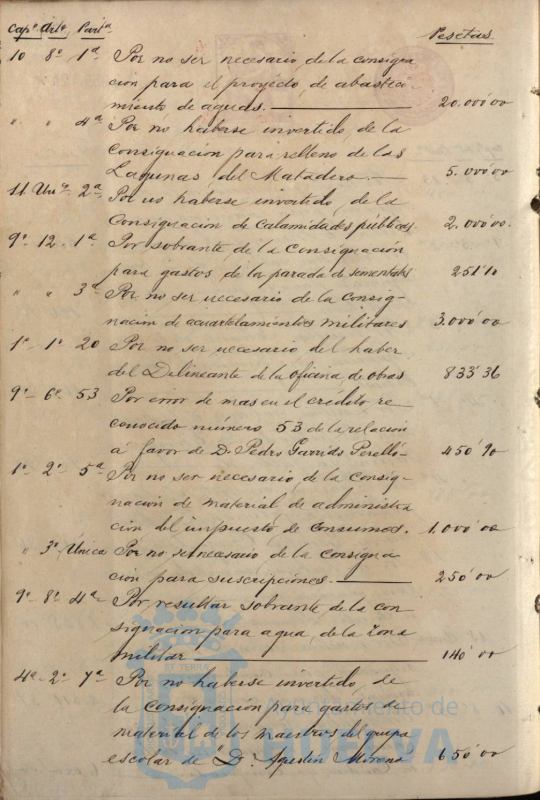 Capº Artº Partª Pesetas
10 8º 1ª Por no ser necesario de la consigna
cion para el proyecto, de abasteci-
miento de aguas. 20.000'00
" " 4ª Por no haberse invertido, de la
Consignacion para relleno de las
Lagunas del Matadero. 5.000'00
11. Unº 2ª Por no haberse invertido, de la
Consignacion de Calamidades públicas. 2.000'00.
9º 12. 1ª Por sobrante, de la Consignación
para gastos, de la parada de sementales 251'10
" " 3ª Por no ser necesario de la Consig-
nacion de acuartelamientos militares 3.000'00
1º 1º 20 Por no ser necesario del haber
del Delineante de la oficina de obras 833'36
9º 6º 53 Por error de mas en el crédito re
conocido número 53 de la relación
á favor de D. Pedro Garrido Perelló- 450'90
1º 2º 5ª Por no ser necesario de la Consig-
nacion de material de administra
cion del impuesto de Consumos. 1.000'00
" 3º Única Por no ser necesario de la Consigna
cion para suscripciones. 250'00
9º 8º 4ª Por resultar sobrante de la con
signacion para agua, de la zona
militar 140'00
4º 2º 7ª Por no haberse invertido, de
la Consignacion para gastos de
material de los maestros del grupo
escolar de "D. Agustin Moreno" 650'00
Ayuntamiento de
HUELVA